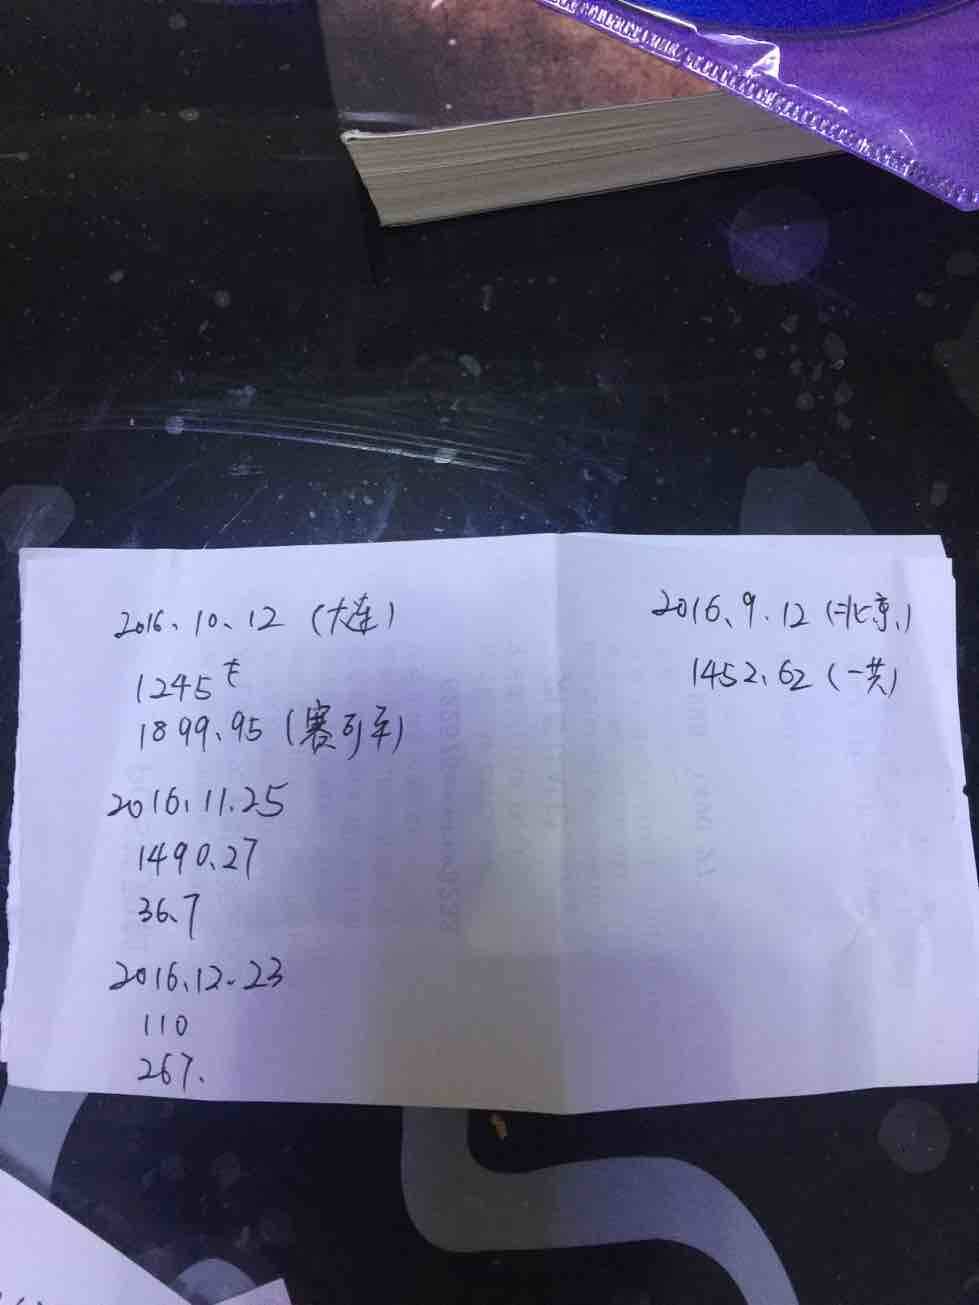 2016、10、12 (大连)
1245
1899.95 (赛列车)
2016.11.25
1490.27
36.7
2016.12.23
110
267.
2016.9.12 (北京)
1452.62 (一共)